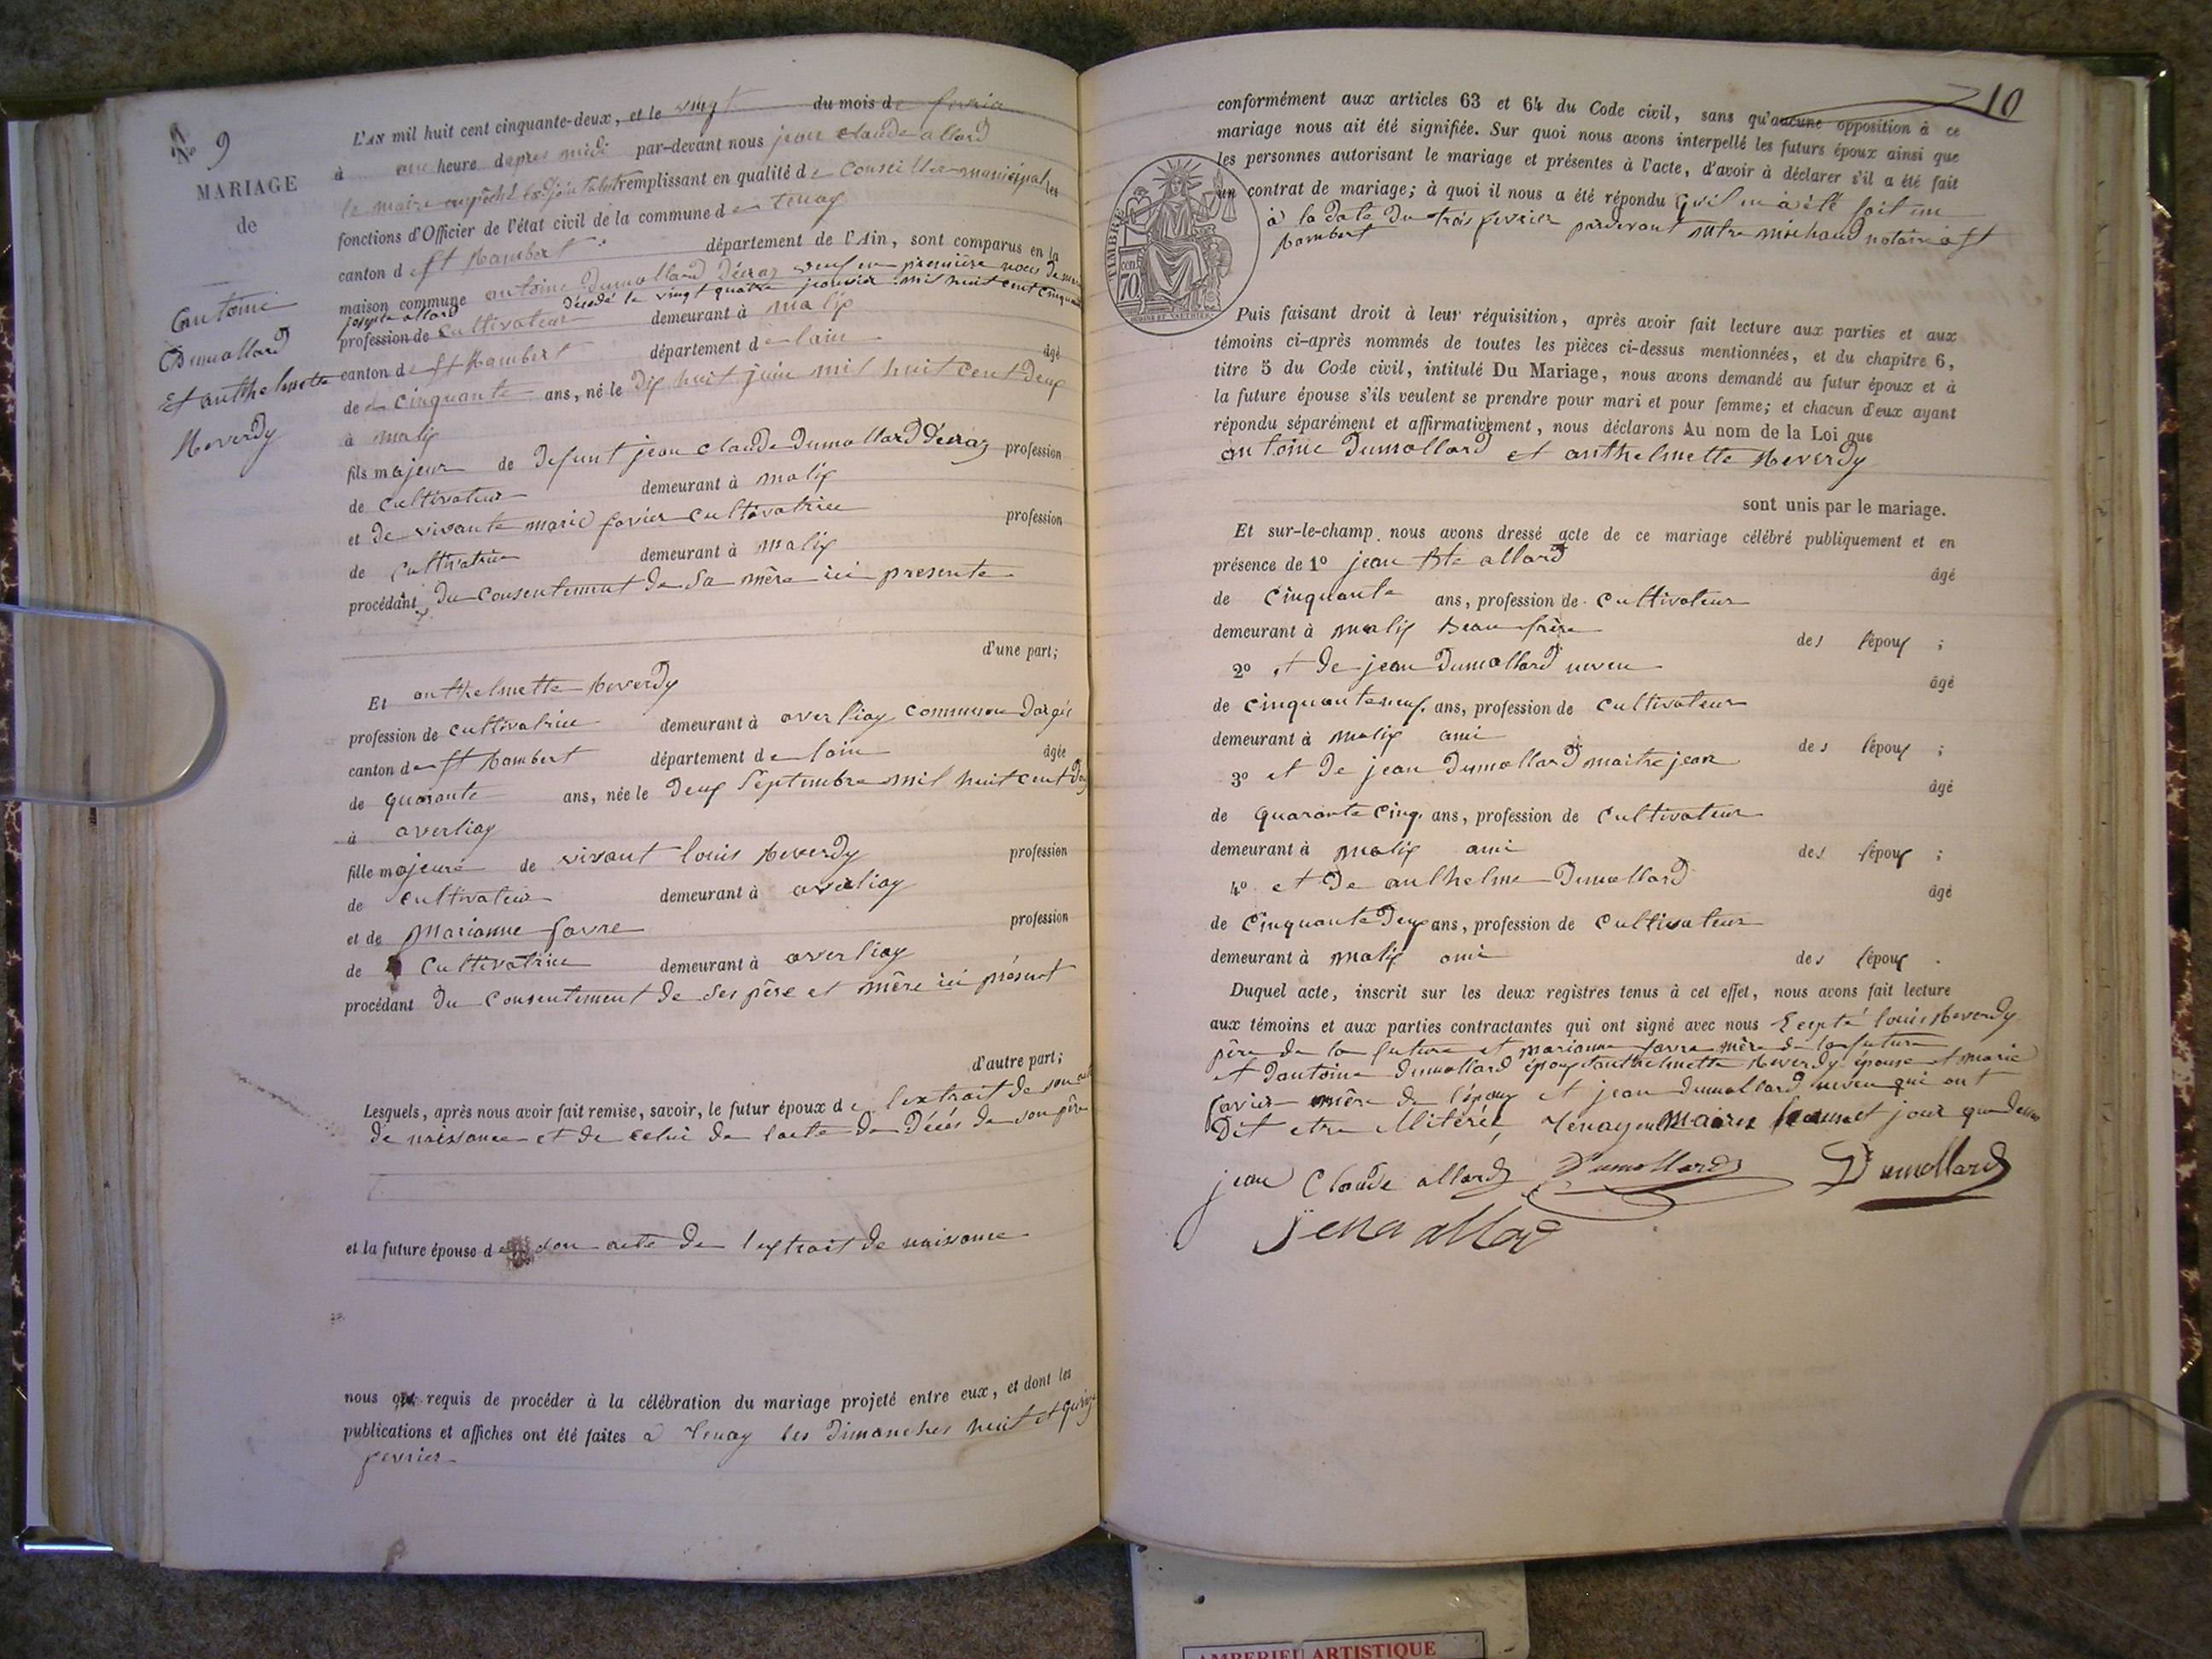 N° 9
MARIAGE
de
Antoine
Dumollard
Et anthelmette
Reverdy
L'AN mil huit cent cinquante-deux, et le vingt du mois de fevrier
à une heure dapres midi par-devant nous jean claude allard
le maire empêché remplissant en qualité de Conseiller municipal les
fonctions d'Officier de l'état civil de la commune de tenay
canton de st Rambert département de l'Ain, sont comparus en la
maison commune antoine Dumollard Décraz veuf en première noces de
josepte allard décédé le vingt quatre janvier mil huit cent cinquante
profession de Cultivateur demeurant à malix
canton de st Rambert département de lain âgé
de cinquante ans, né le Dix huit juin mil huit cent Deux
à malix
fils majeur de Defunt jean claude Dumollard Décraz profession
de Cultivateur demeurant à malix
et de vivante marie favier cultivatrice profession
de cultivatrice demeurant à malix
procédant Du Consentement de Sa mère ici presente
d'une part;
Et anthelmette Reverdy
profession de cultivatrice demeurant à averliay commune Dargis
canton de st Rambert département de lain âgée
de quarante ans, née le Deux Septembre mil huit cent
à averliay
fille majeure de vivant louis Reverdy profession
de Cultivateur demeurant à averliay
et de Marianne favre profession
de Cultivatrice demeurant à averliay
procédant Du Consentement de Ses père et mère ici présent
d'autre part;
Lesquels, après nous avoir fait remise, savoir, le futur époux de lextrait de son acte
de naissance et de celui de lacte de Décés de son père
et la future épouse de son acte de lextrait de naissance
nous ont requis de procéder à la célébration du mariage projeté entre eux, et dont les
publications et affiches ont été faites a Tenay les Dimanches huit et quinze
fevrier
10
conformément aux articles 63 et 64 du Code civil, sans qu'aucune opposition à ce
mariage nous ait été signifiée. Sur quoi nous avons interpellé les futurs époux ainsi que
les personnes autorisant le mariage et présentes à l'acte, d'avoir à déclarer s'il a été fait
un contrat de mariage; à quoi il nous a été répondu Quil en a été fait un
à la date du trois fevrier pardevant mtre michaud notaire a st
Rambert
TIMBRE
70 cent
Puis faisant droit à leur réquisition, après avoir fait lecture aux parties et aux
témoins ci-après nommés de toutes les pièces ci-dessus mentionnées, et du chapitre 6,
titre 5 du Code civil, intitulé Du Mariage, nous avons demandé au futur époux et à
la future épouse s'ils veulent se prendre pour mari et pour femme; et chacun d'eux ayant
répondu séparément et affirmativement, nous déclarons Au nom de la Loi que
antoine Dumollard et anthelmette Reverdy
sont unis par le mariage.
Et sur-le-champ nous avons dressé acte de ce mariage célébré publiquement et en
présence de 1° jean Bte allard âgé
de Cinquante ans, profession de Cultivateur
demeurant à malix Beau frère des lépoux ;
2° et de jean Dumollard neveu âgé
de cinquante neuf ans, profession de Cultivateur
demeurant à malix ami des lépoux ;
3° et de jean Dumollard maitre jean âgé
de quarante cinq ans, profession de Cultivateur
demeurant à malix ami des lépoux ;
4° et De anthelme Dumollard âgé
de Cinquante Deux ans, profession de Cultivateur
demeurant à malix ami des lépoux .
Duquel acte, inscrit sur les deux registres tenus à cet effet, nous avons fait lecture
aux témoins et aux parties contractantes qui ont signé avec nous Excpté louis Reverdy
père de la future et marianne favre mère de la future
et dantoine Dumollard époux anthelmette Reverdy épouse et marie
favier mère de l'époux et jean Dumollard neveu qui ont
Dit etre Illitéré, Tenay en mairie et jour que dessus
jean Claude allard Dumollard Dumollard
AMBERIEU ARTISTIQUE